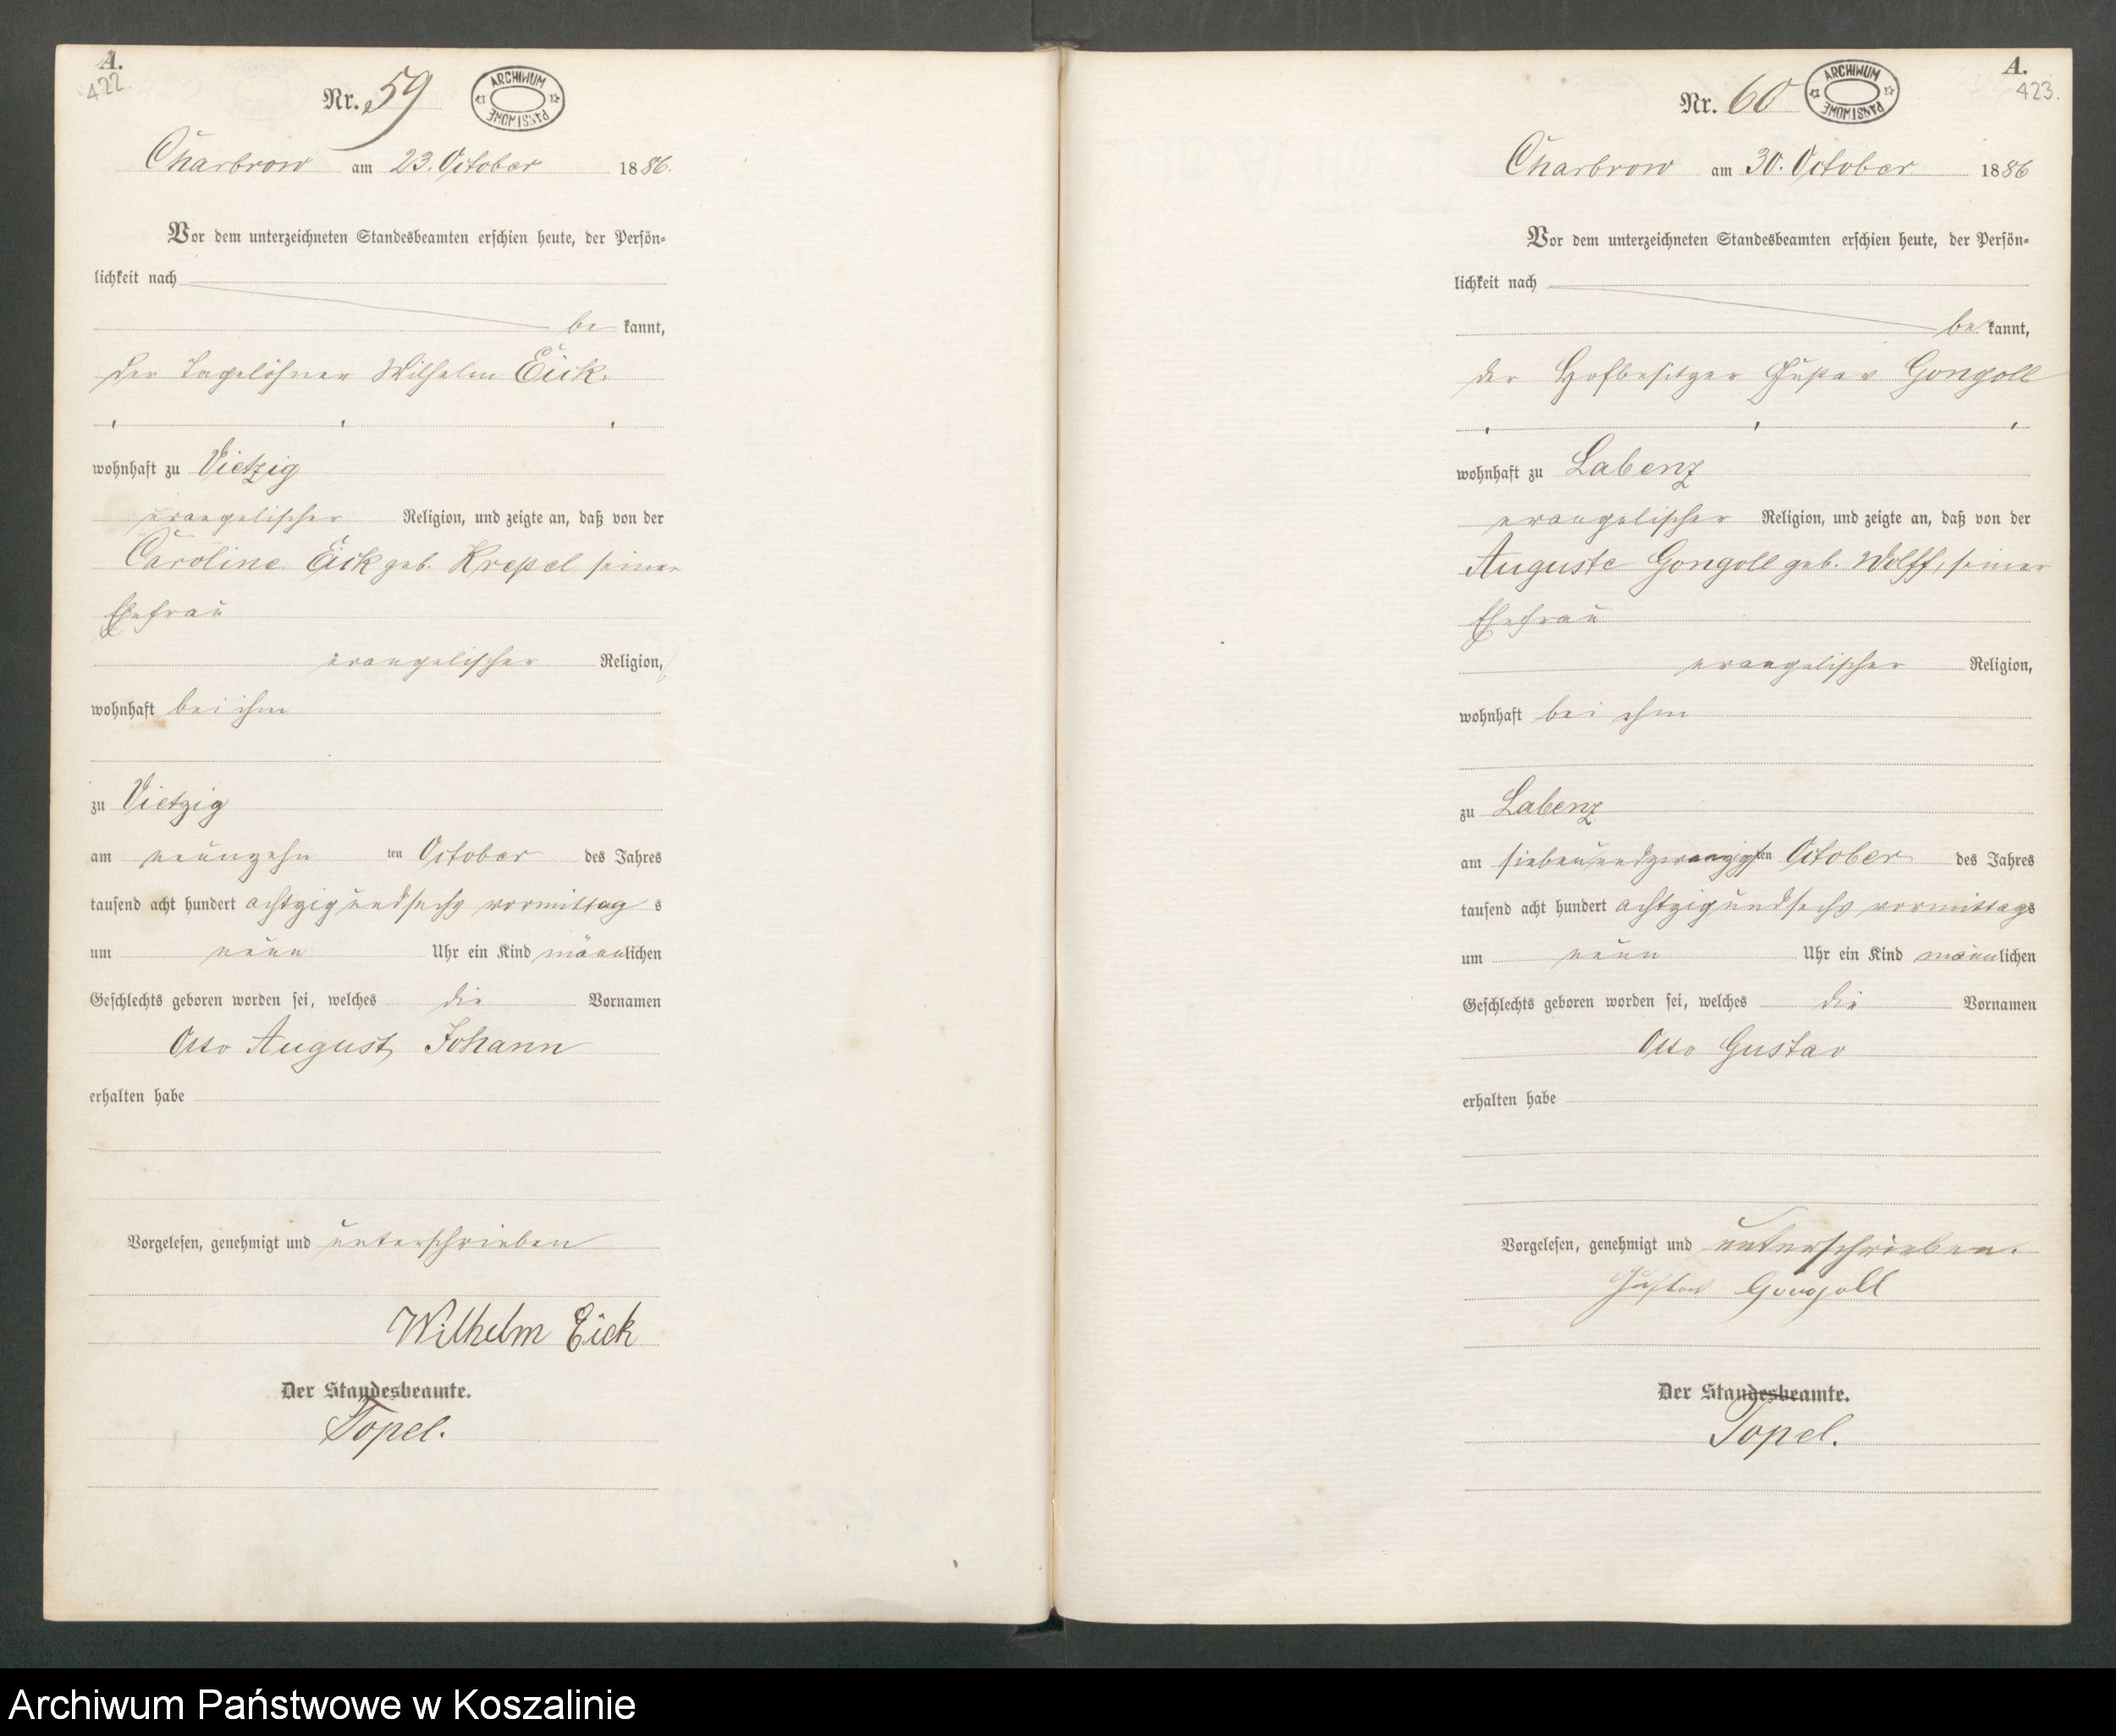 A.
422.
Nr. 59
ARCHIWUM PAŃSTWOWE
Charbrow am 23. October 1886.
Vor dem unterzeichneten Standesbeamten erschien heute, der Persön-
lichkeit nach
be kannt,
der Tagelöhner Wilhelm Eick.
wohnhaft zu Vietzig
evangelischer Religion, und zeigte an, daß von der
Caroline Eick geb. Krepel seiner
Ehefrau
evangelischer Religion,
wohnhaft bei ihm
zu Vietzig
am neunzehn ten October des Jahres
tausend acht hundert achtzig und sechs vormittag s
um neun Uhr ein Kind männlichen
Geschlechts geboren worden sei, welches die Vornamen
Otto August Johann
erhalten habe
Vorgelesen, genehmigt und unterschrieben
Wilhelm Eick
Der Standesbeamte.
Topel.
A.
423.
Nr. 60
ARCHIWUM PAŃSTWOWE
Charbrow am 30. October 1886
Vor dem unterzeichneten Standesbeamten erschien heute, der Persön-
lichkeit nach
be kannt,
der Hofbesitzer Gustav Gongoll
wohnhaft zu Labenz
evangelischer Religion, und zeigte an, daß von der
Auguste Gongoll geb. Wolff, seiner
Ehefrau
evangelischer Religion,
wohnhaft bei ihm
zu Labenz
am siebenundzwanzigsten October des Jahres
tausend acht hundert achtzig und sechs vormittags
um neun Uhr ein Kind männlichen
Geschlechts geboren worden sei, welches die Vornamen
Otto Gustav
erhalten habe
Vorgelesen, genehmigt und unterschrieben.
Gustav Gongoll
Der Standesbeamte.
Topel.
Archiwum Państwowe w Koszalinie